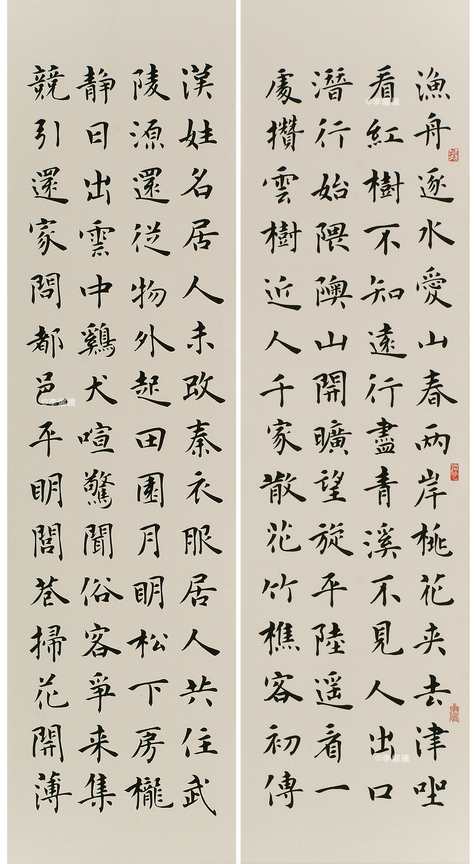 漁舟逐水愛山春兩岸桃花夹去津坐
看紅樹不知遠行盡青溪不見人出口
潛行始隈隩山開曠望旋平陸遥看一
處攢雲樹近人千家散花竹樵客初傳
漢姓名居人未改秦衣服居人共住武
陵源還從物外起田園月明松下房櫳
静日出雲中鷄犬喧驚聞俗客爭来集
競引還家問都邑平明閭巷掃花開薄